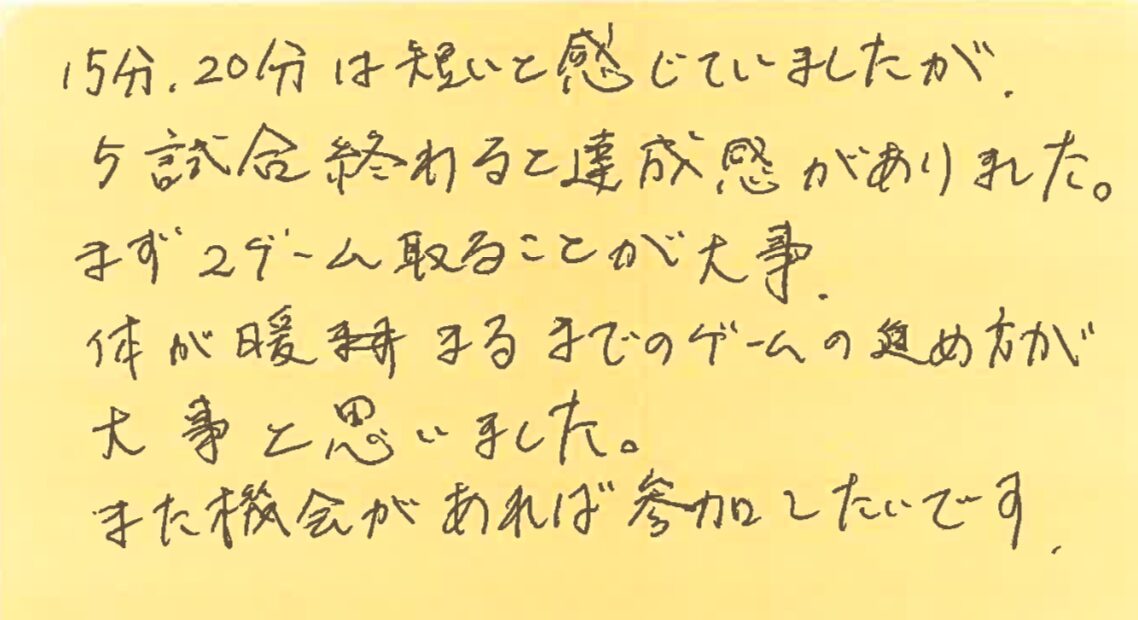 15分、20分は短いと感じていましたが、
5試合終わると達成感がありました。
まず2ゲーム取ることが大事、
体が暖まるまでのゲームの進め方が
大事と思いました。
また機会があれば参加したいです、